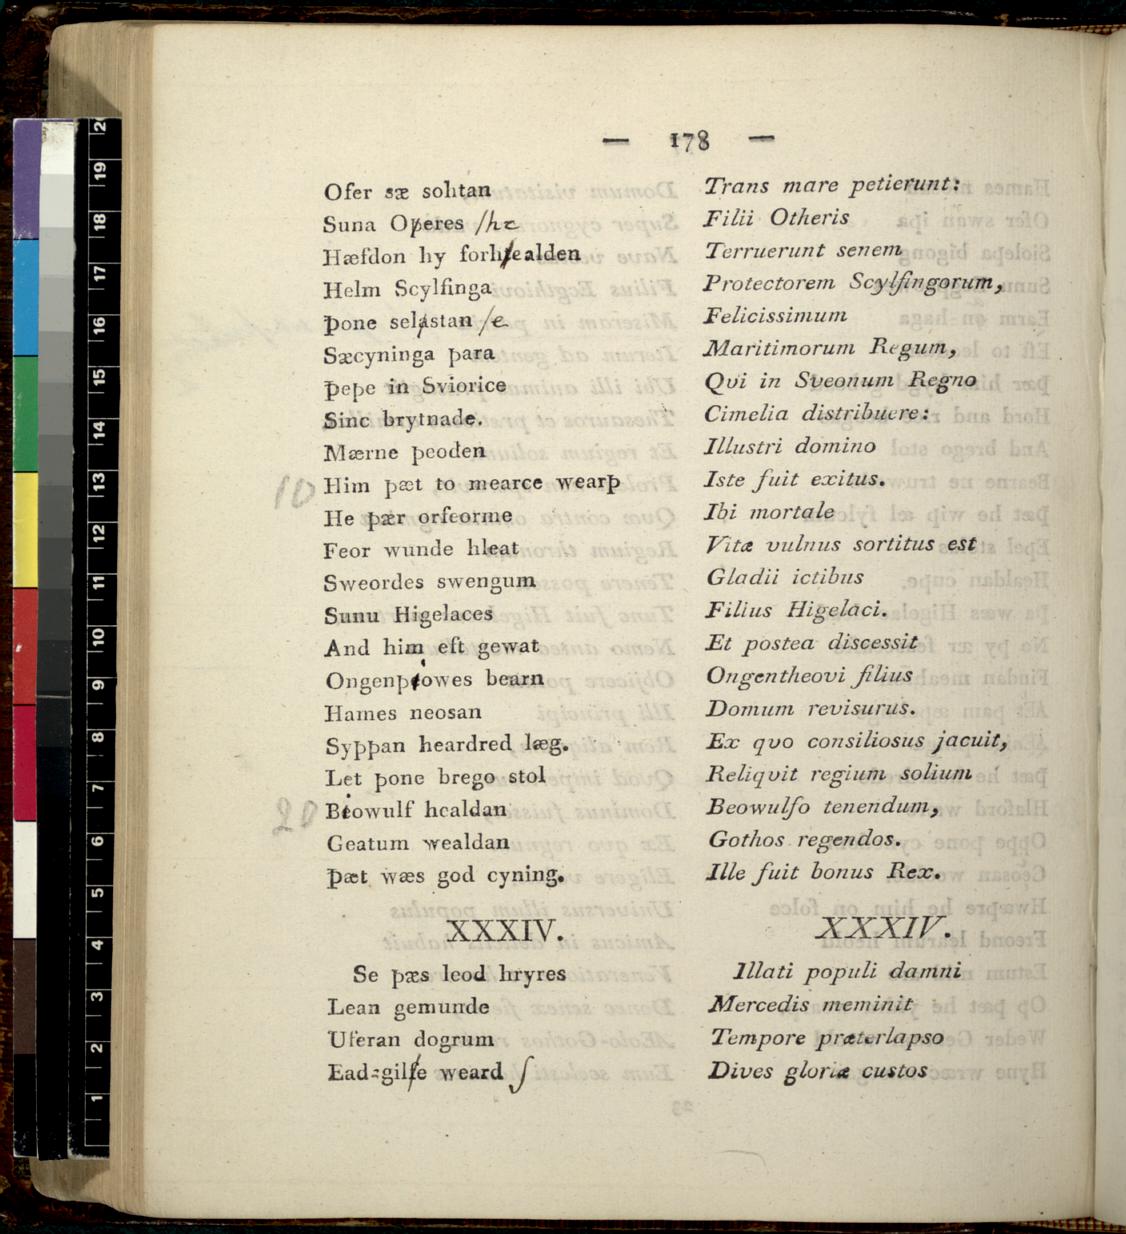 — 178 —
Ofer sæ sohtan
Suna Oþeres /he
Hæfdon hy forhfealden
Helm Scylfinga
þone selastan /e
Sæcyninga þara
þeþe in Sviorice
Sinc brytnade.
Mærne þeoden
10 Him þæt to mearce wearþ
He þær orfeorme
Feor wunde hleat
Sweordes swengum
Sunu Higelaces
And him eft gewat
Ongenþiowes bearn
Hames neosan
Syþþan heardred læg.
Let þone brego stol
20 Biowulf healdan
Geatum wealdan
þæt wæs god cyning.
XXXIV.
Se þæs leod hryres
Lean gemunde
Uferan dogrum
Ead-gilfe weard ʃ
Trans mare petierunt:
Filii Otheris
Terruerunt senem
Protectorem Scylfingorum,
Felicissimum
Maritimorum Regum,
Qvi in Sveonum Regno
Cimelia distribuere:
Illustri domino
Iste fuit exitus.
Ibi mortale
Vitæ vulnus sortitus est
Gladii ictibus
Filius Higelaci.
Et postea discessit
Ongentheovi filius
Domum revisurus.
Ex qvo consiliosus jacuit,
Reliqvit regium solium
Beowulfo tenendum,
Gothos regendos.
Ille fuit bonus Rex.
XXXIV.
Illati populi damni
Mercedis meminit
Tempore præterlapso
Dives gloriæ custos